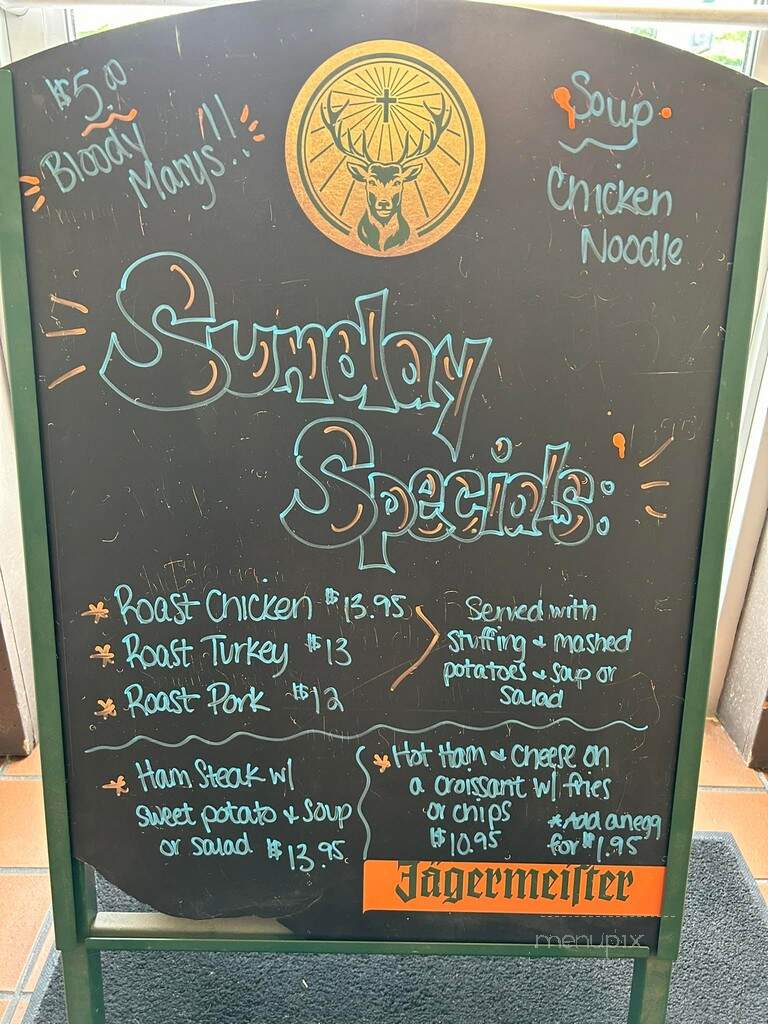 $5.00
Bloody
Marys!!
Soup
Chicken
Noodle
Sunday
Specials:
* Roast Chicken $13.95
* Roast Turkey $13
* Roast Pork $12
Served with
stuffing & mashed
potatoes & soup or
salad
* Ham Steak w/
sweet potato & soup
or salad $13.95
* Hot Ham & Cheese on
a croissant w/ fries
or chips
$10.95
*Add an egg
for $1.95
Jägermeiſter
menupix